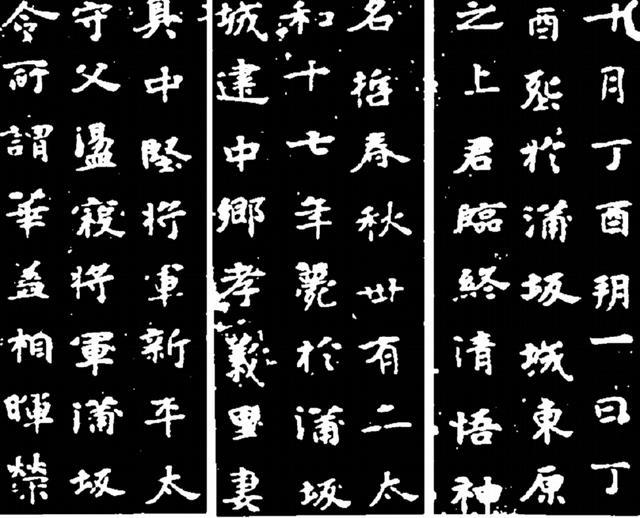 九月丁酉朔一日丁
酉於蒲坂城東原
之上君臨終清悟神
名哲春秋卅有二太
和十七年薨於蒲坂
城建中鄉孝義里妻
中堅將軍新平太
守父盪寇將軍蒲坂
令所謂華蓋相暉榮